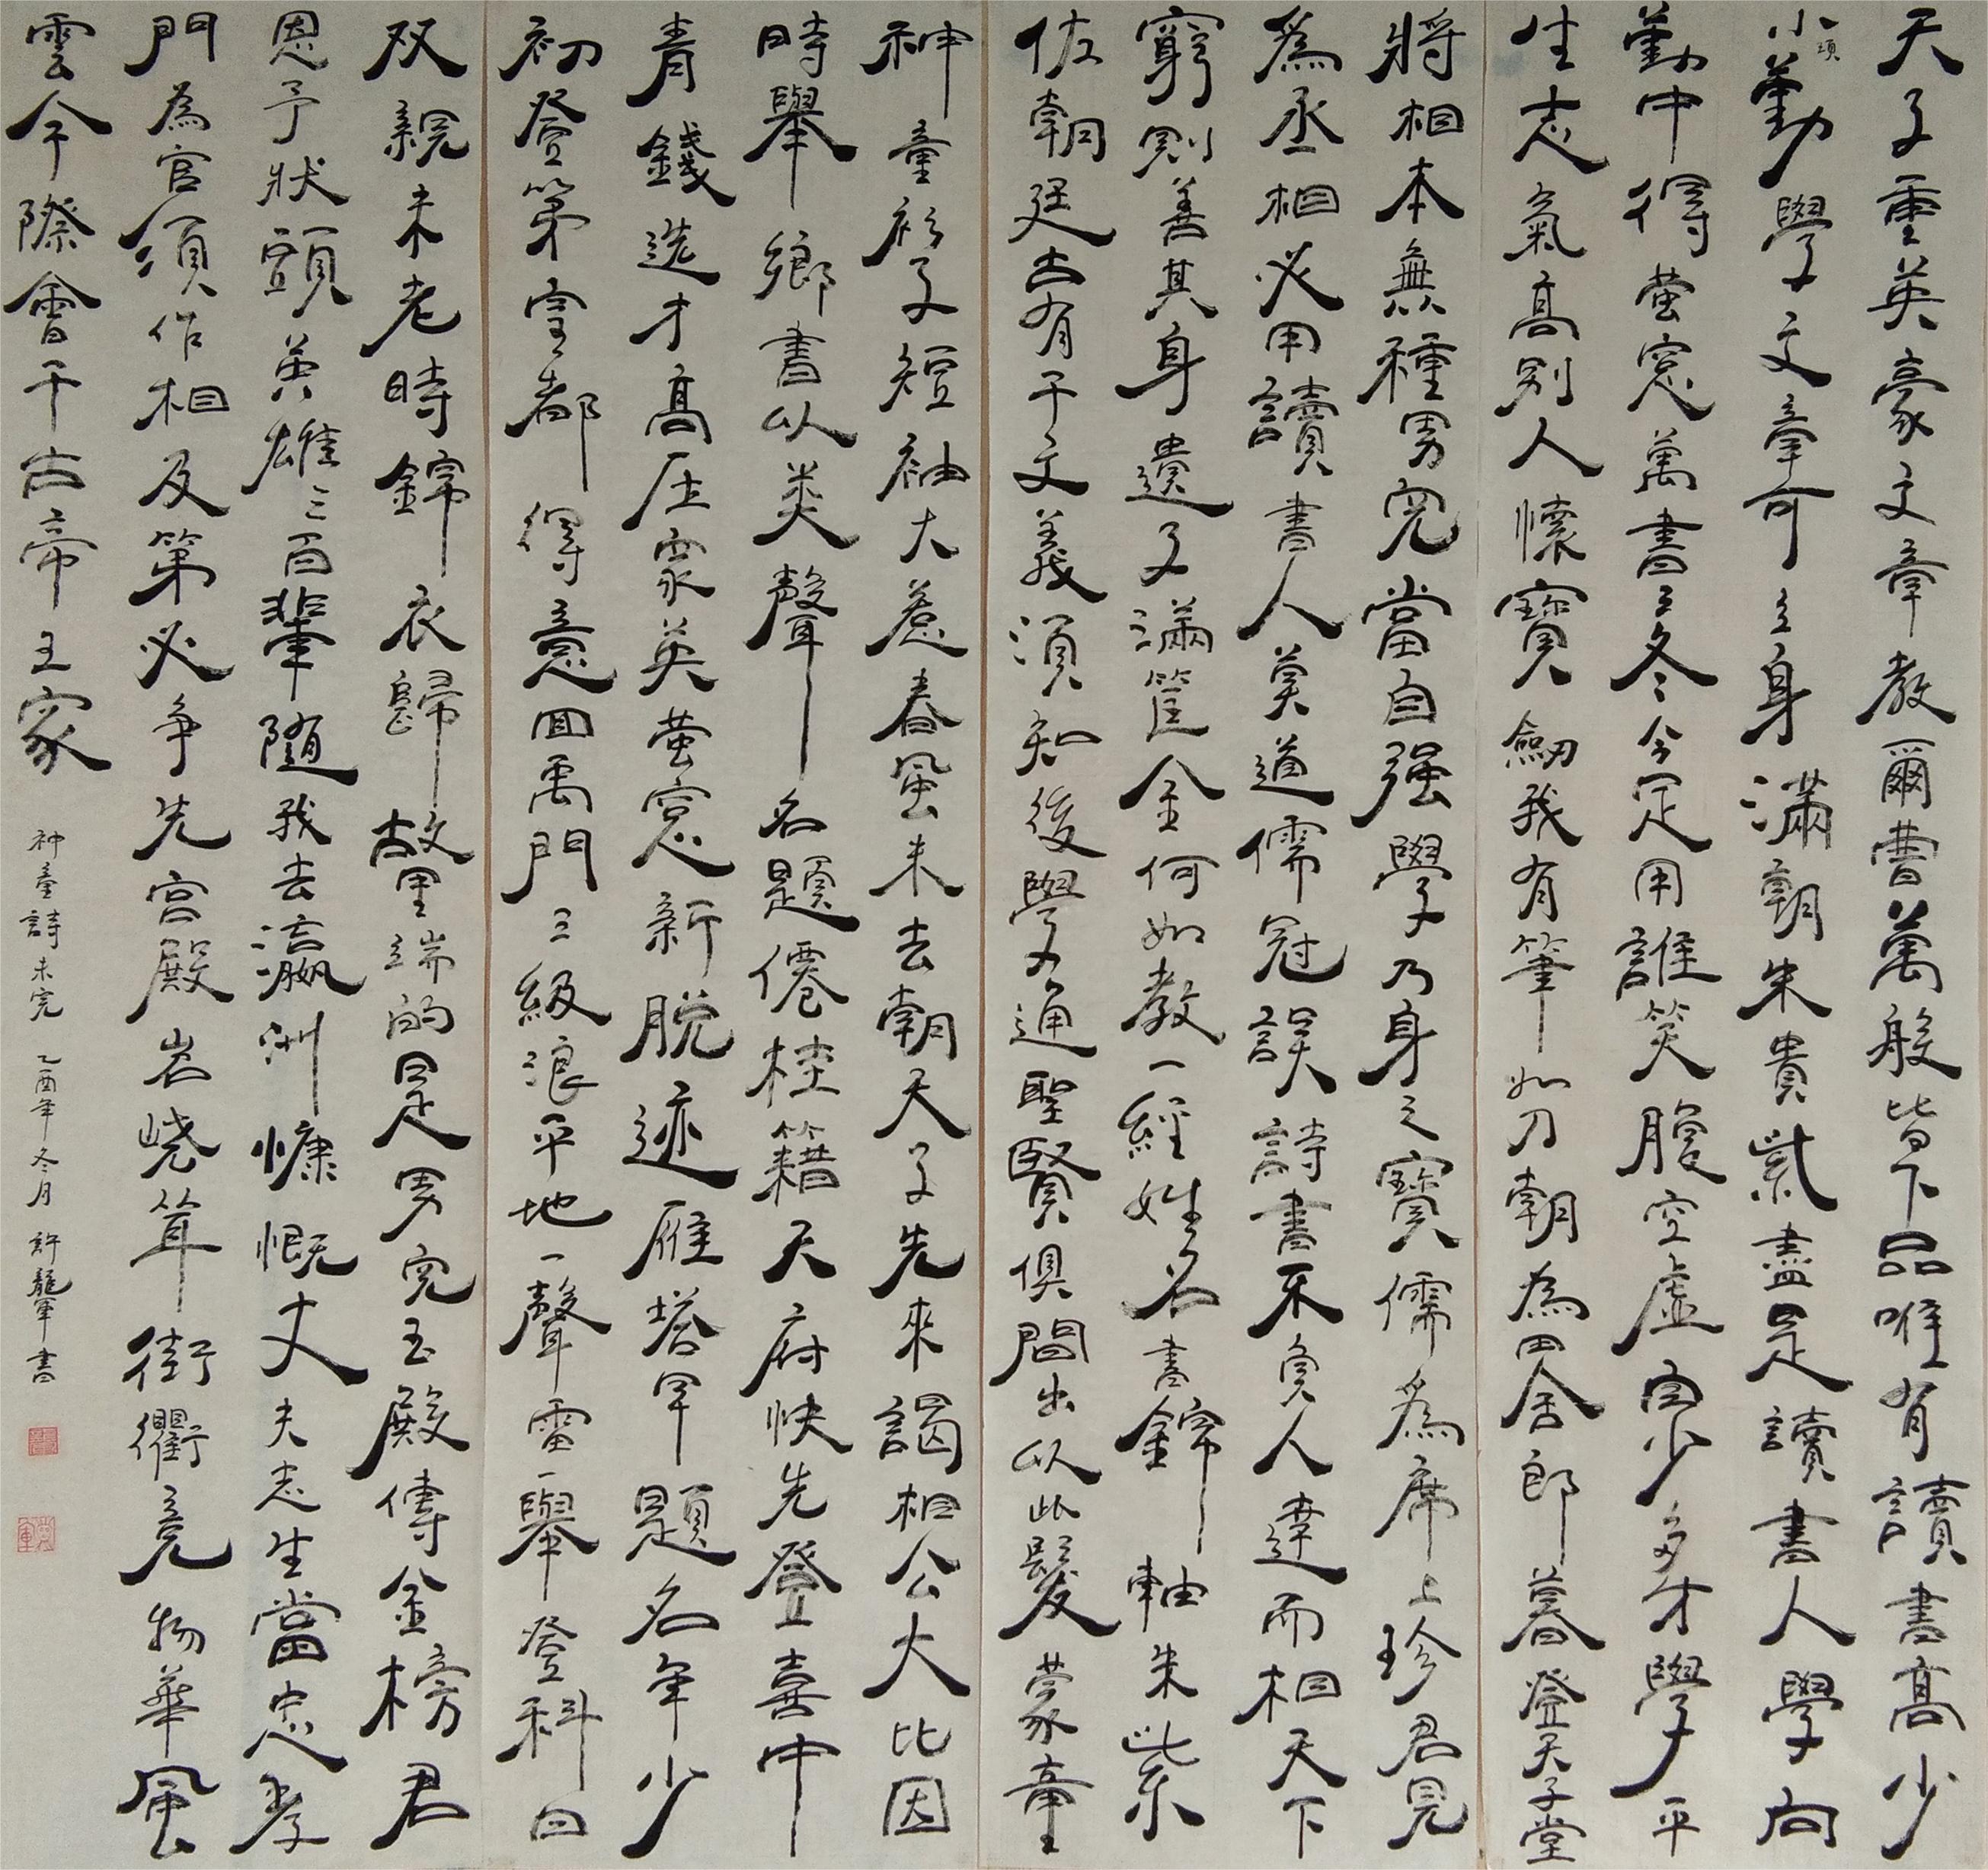 天子重英豪文章教爾曹萬般皆下品唯有讀書高少
小須勤學文章可立身滿朝朱貴紫盡是讀書人學向
勤中得萤窓萬書三冬今足用誰笑腹空虚自少多才學平
生志氣高别人懷寶劔我有筆如刀朝為田舍郎暮登天子堂
將相本無種男兒當自强學乃身之寶儒為席上珍君見
為丞相必用讀書人莫道儒冠誤詩書不負人達而相天下
窮則善其身遺子滿筐金何如教一經姓名書錦軸朱紫
佐朝廷古有千文義須知後學通聖賢俱間出以此髮蒙童
神童衫子短袖大惹春風未去朝天子先來謁相公大比因
時舉鄉書以类聲名題僊桂籍天府快先登喜中
青錢选才高压家英萤窓新脱迹雁塔早題名年少
初登第皇都得意回禹門三級浪平地一聲雷一舉登科日
双親未老時錦衣歸故里端的是男兒玉殿傳金榜君
恩予狀頭英雄三百輩随我去瀛洲慷慨丈夫志生當忠孝
門為官須作相及第必争先宫殿岧嶢聳街衢竞物華風
雲今際會千古帝王家
神童詩未完 乙酉年冬月 許龍軍書